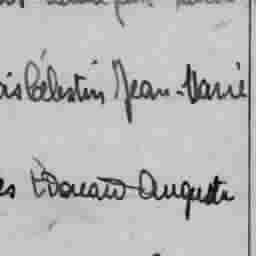 is Célestin Jean-Marie
es Edouard Auguste